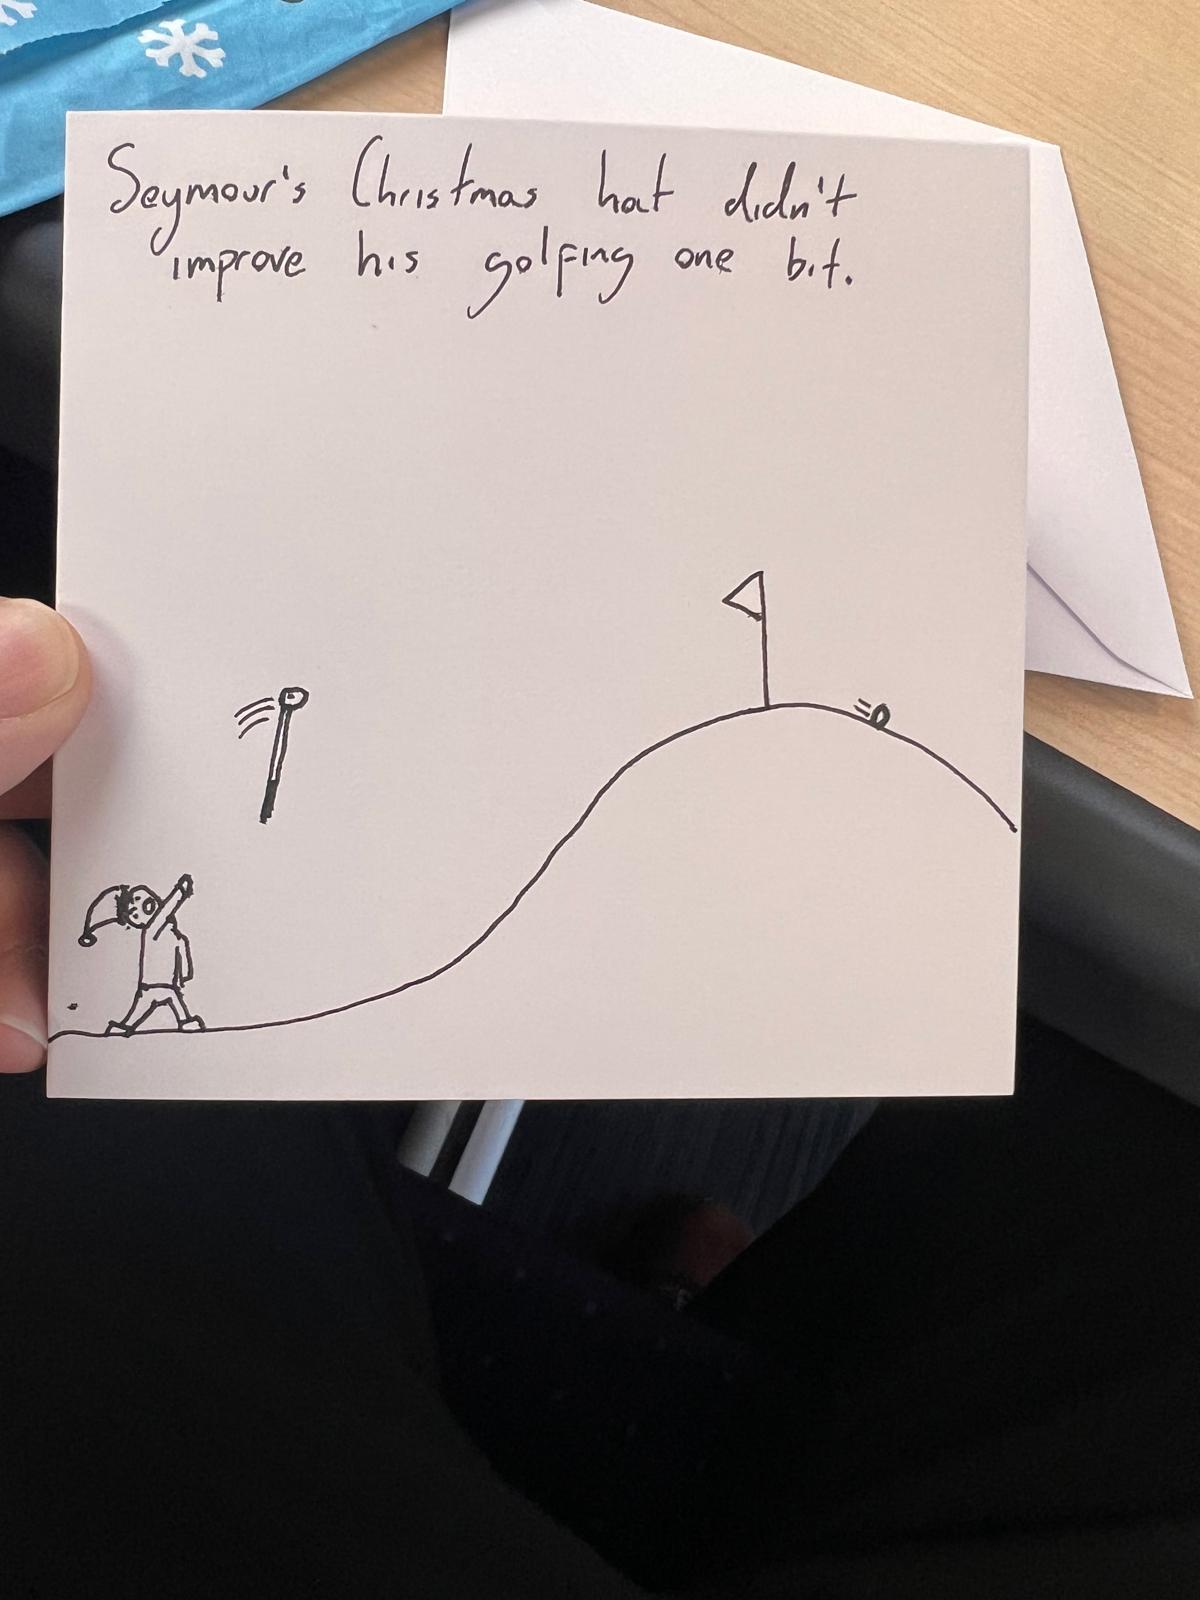 Seymour's Christmas hat didn't
improve his golfing one bit.